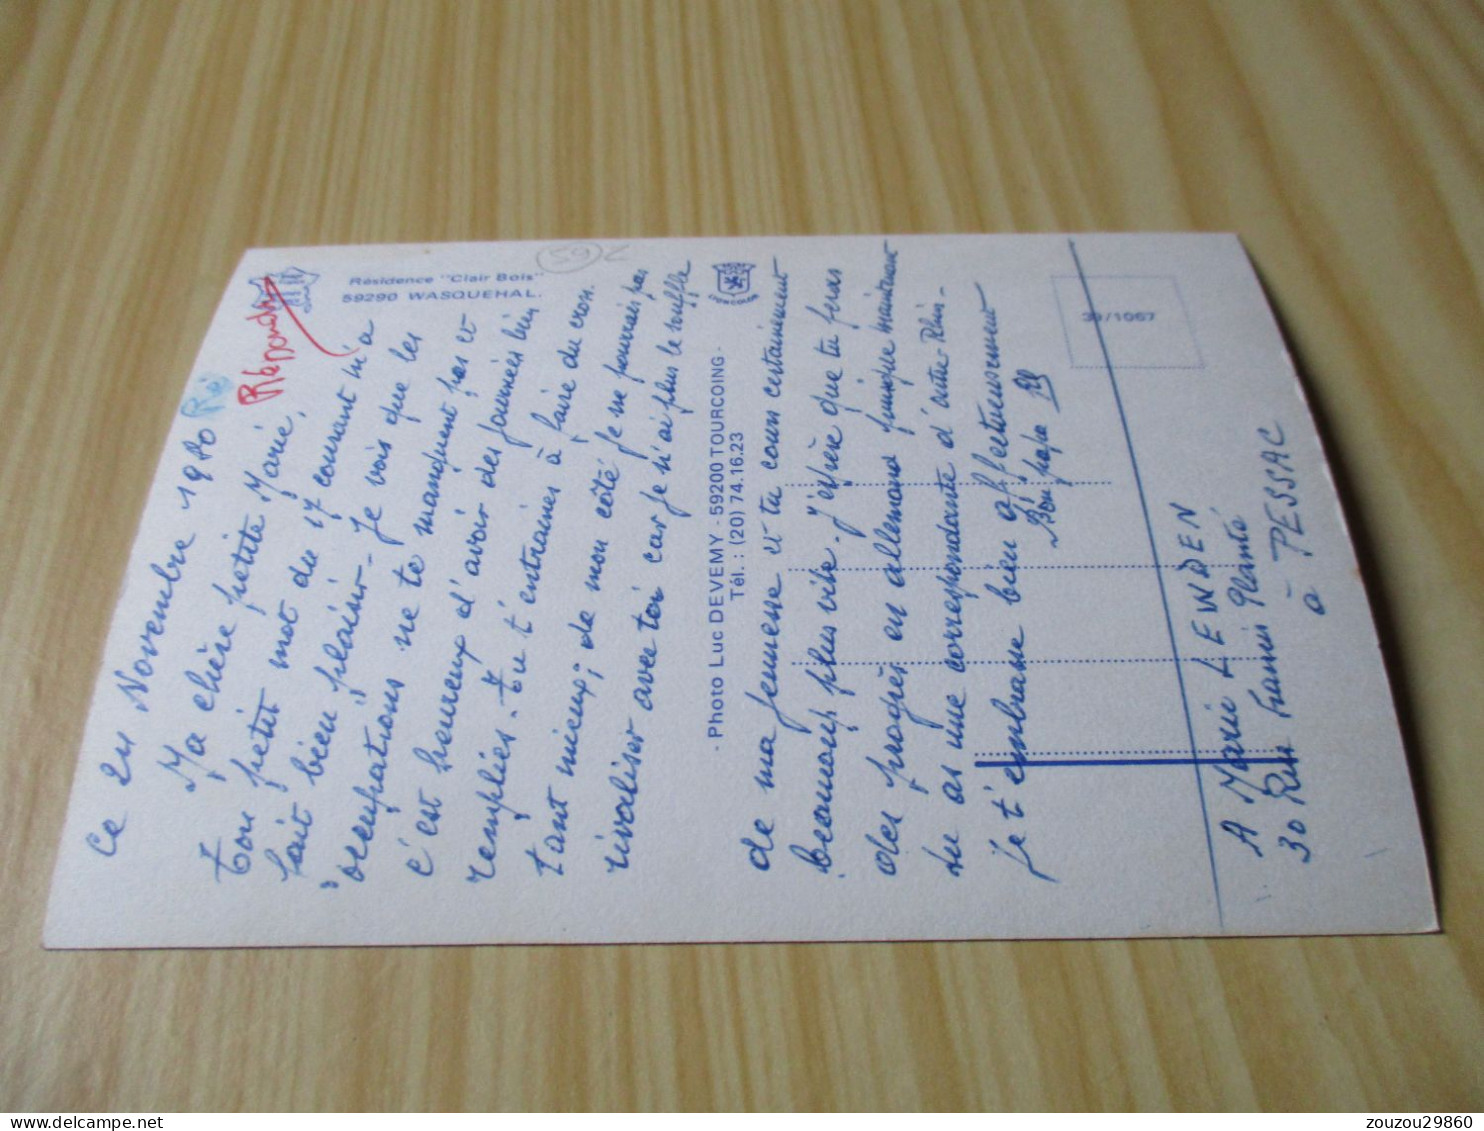 Ce 21 Novembre 1980
Ré
Répondu
Résidence "Clair Bois"
59290 WASQUEHAL.
59
Ma chère petite Marie,
Ton petit mot du 17 courant m'a
fait bien plaisir - Je vois que les
occupations ne te manquent pas et
c'est heureux d'avoir des journées bien
remplies. Tu t'entraînes à faire du cross.
tant mieux ; de mon côté je ne pourrais pas
rivaliser avec toi car je n'ai plus le souffle
LION COLOR
- Photo Luc DEVEMY - 59200 TOURCOING -
Tél. : (20) 74.16.23
de ma jeunesse et tu cours certainement
beaucoup plus vite. J'espère que tu feras
des progrès en allemand puisque maintenant
tu as une correspondante d'outre-Rhin.
Je t'embrasse bien affectueusement
Bon papa
39/1067
A Marie LEWDEN
30 Rue Francis Planté
à PESSAC
zouzou29860